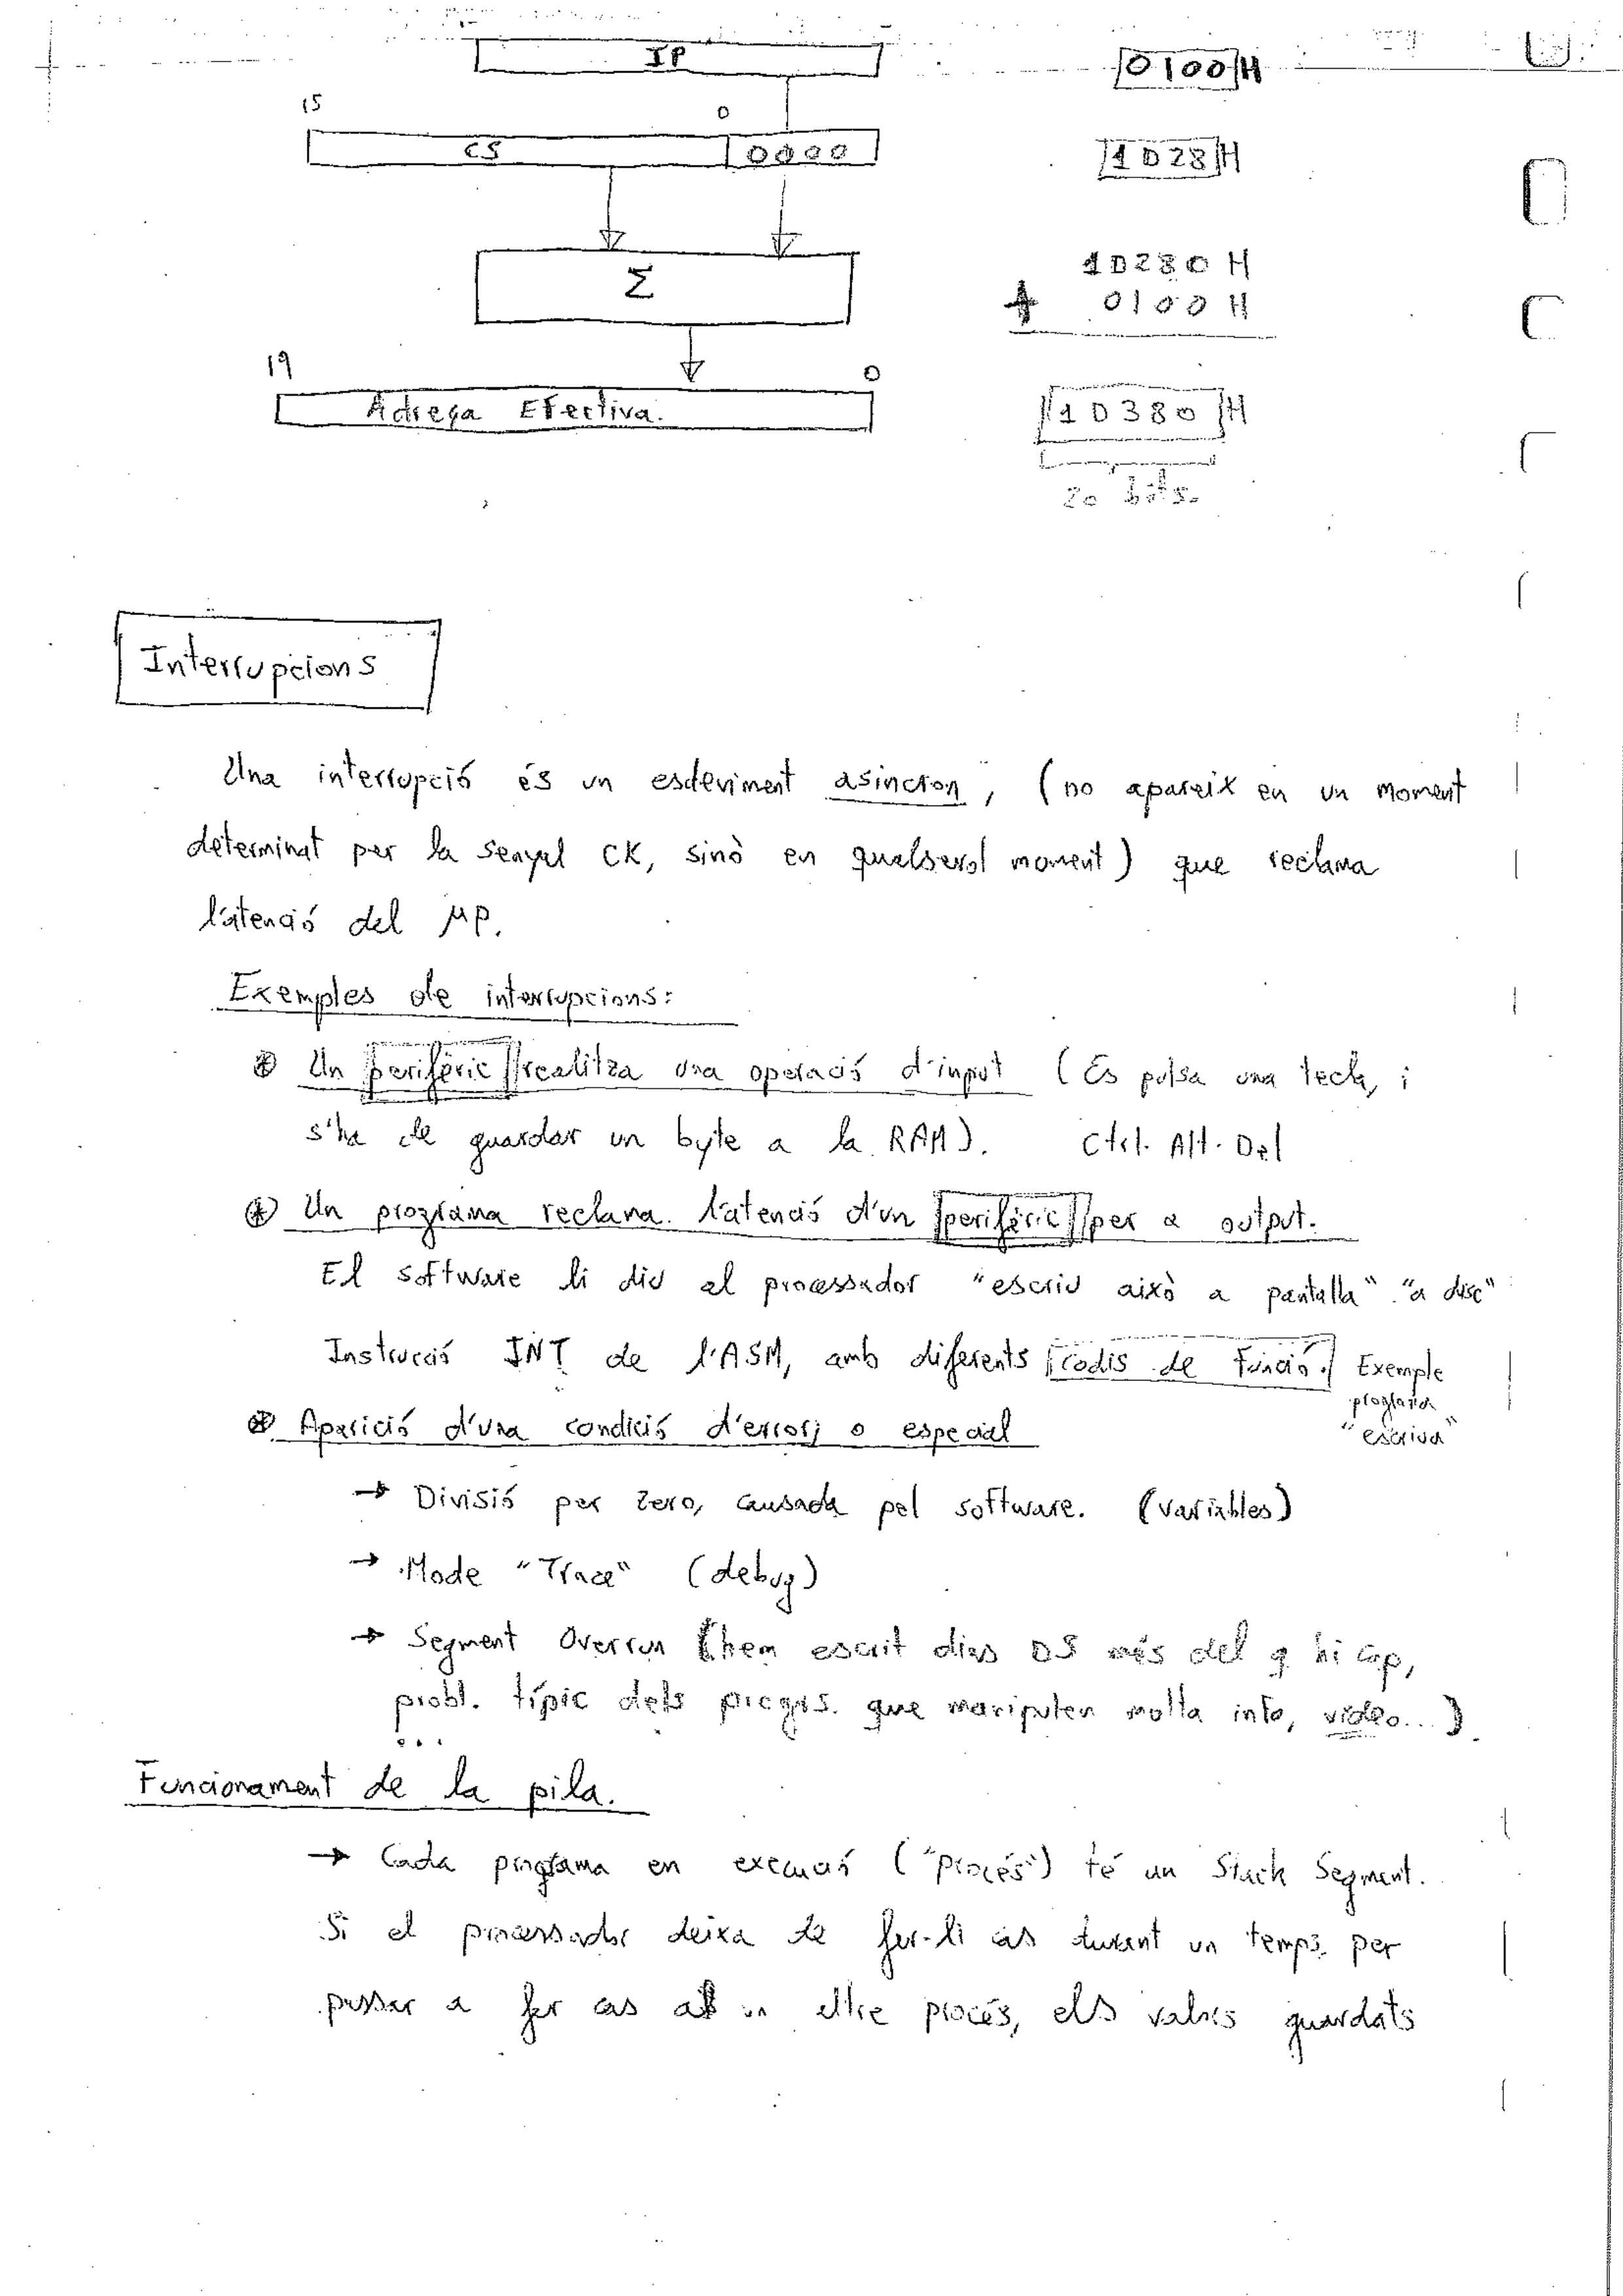 IP
0100 H
15
0
CS
0000
1D28 H
Σ
1D280 H
+ 0100 H
19
0
Adreça Efectiva.
1D380 H
20 bits.
Interrupcions
Una interrupció és un esdeveniment asíncron, (no apareix en un moment
determinat per la senyal CK, sinò en qualsevol moment) que reclama
l'atenció del µP.
Exemples de interrupcions:
Un perifèric realitza una operació d'input (Es polsa una tecla, i
s'ha de guardar un byte a la RAM). Ctrl. Alt. Del
Un programa reclama l'atenció d'un perifèric per a output.
El software li diu al processador "escriu això a pantalla" "a disc"
Instrucció INT de l'ASM, amb diferents codis de Funció. Exemple
programa
"escriua"
Aparició d'una condició d'error, o especial
→ Divisió per zero, causada pel software. (variables)
→ Mode "Trace" (debug)
→ Segment Overrun (hem escrit dins DS més del q hi cap,
probl. típic dels progrs. que manipulen molta info, video...).
...
Funcionament de la pila.
→ Cada programa en execució ("procés") té un Stack Segment.
Si el processador deixa de fer-li cas durant un temps per
passar a fer cas a un altre procés, els valors guardats